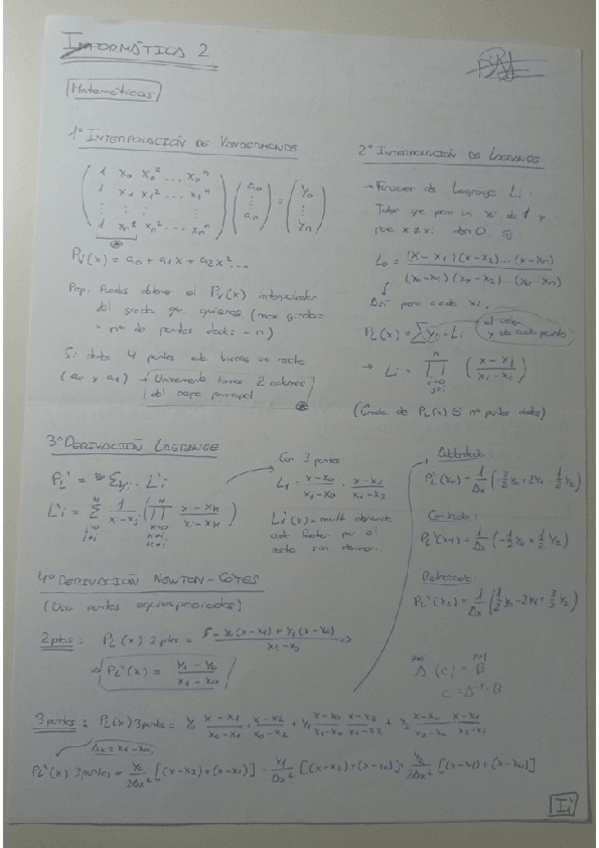 INFORMÁTICA 2
Matemáticas
1º INTERPOLACIÓN DE VANDERMONDE
( 1 x₀ x₀² ... x₀ⁿ ) ( a₀ ) = ( y₀ )
1 x₁ x₁² ... x₁ⁿ
1 xₙ² ... xₙⁿ aₙ
Pᵥ(x) = a₀ + a₁x + a₂x² ...
Prop. Puedes obtener el Pᵥ(x) interpolador
del grado que quieras (max grado=
= nº de puntos dados - n)
Si dados 4 puntos solo buscas una recta
(a₀ y a₁) → Unicamente tomas 2 columnas
del campo principal
2º INTERPOLACIÓN DE LAGRANGE
→ Funciones de Lagrange Lᵢ :
Tales que para un xᵢ da 1 y
para x≠xᵢ dan 0.
L₀ = (x-x₁)(x-x₂)...(x-xₙ) / (x₀-x₁)(x₀-x₂)...(x₀-xₙ)
Así para cada xᵢ.
P_L(x) = ∑ yᵢ · Lᵢ
el valor
y de cada punto
→ Lᵢ = ∏ ( x - xⱼ / xᵢ - xⱼ )
(Grado de P_L(x) nº puntos dados)
3º DERIVACIÓN LAGRANGE
P_L' = ∑yᵢ · L'ᵢ
L'ᵢ = ∑ 1/(xᵢ-xⱼ) · ( ∏ x-xₖ / xᵢ-xₖ )
Con 3 puntos:
L₁ = x-x₀/x₁-x₀ · x-x₂/x₁-x₂
Lᵢ'(x) = mult derivando
cada factor por el
resto sin derivar.
Adelantada:
P_L'(x₀) = 1/Δx (-3/2 y₀ + 2y₁ - 1/2 y₂)
Centrada:
P_L'(x₁) = 1/Δx (-1/2 y₀ + 1/2 y₂)
Retrasada:
P_L'(x₂) = 1/Δx (1/2 y₀ - 2y₁ + 3/2 y₂)
4º DERIVACIÓN NEWTON-COTES
(Usa puntos equiespaciados)
2 ptos: P_L(x) 2 ptos = -y₀(x-x₁) + y₁(x-x₀) / x₁-x₀ ⇒
⇒ P_L'(x) = y₁ - y₀ / x₁ - x₀
A (c) = B
c = A⁻¹ · B
3 puntos: P_L(x) 3 puntos = y₀ x-x₁/x₀-x₁ · x-x₂/x₀-x₂ + y₁ x-x₀/x₁-x₀ · x-x₂/x₁-x₂ + y₂ x-x₀/x₂-x₀ · x-x₁/x₂-x₁
Δx = x₁-x₀
P_L'(x) 3 puntos = y₀/2Δx² [(x-x₂)+(x-x₁)] - y₁/Δx² [(x-x₂)+(x-x₀)] + y₂/2Δx² [(x-x₁)+(x-x₀)]